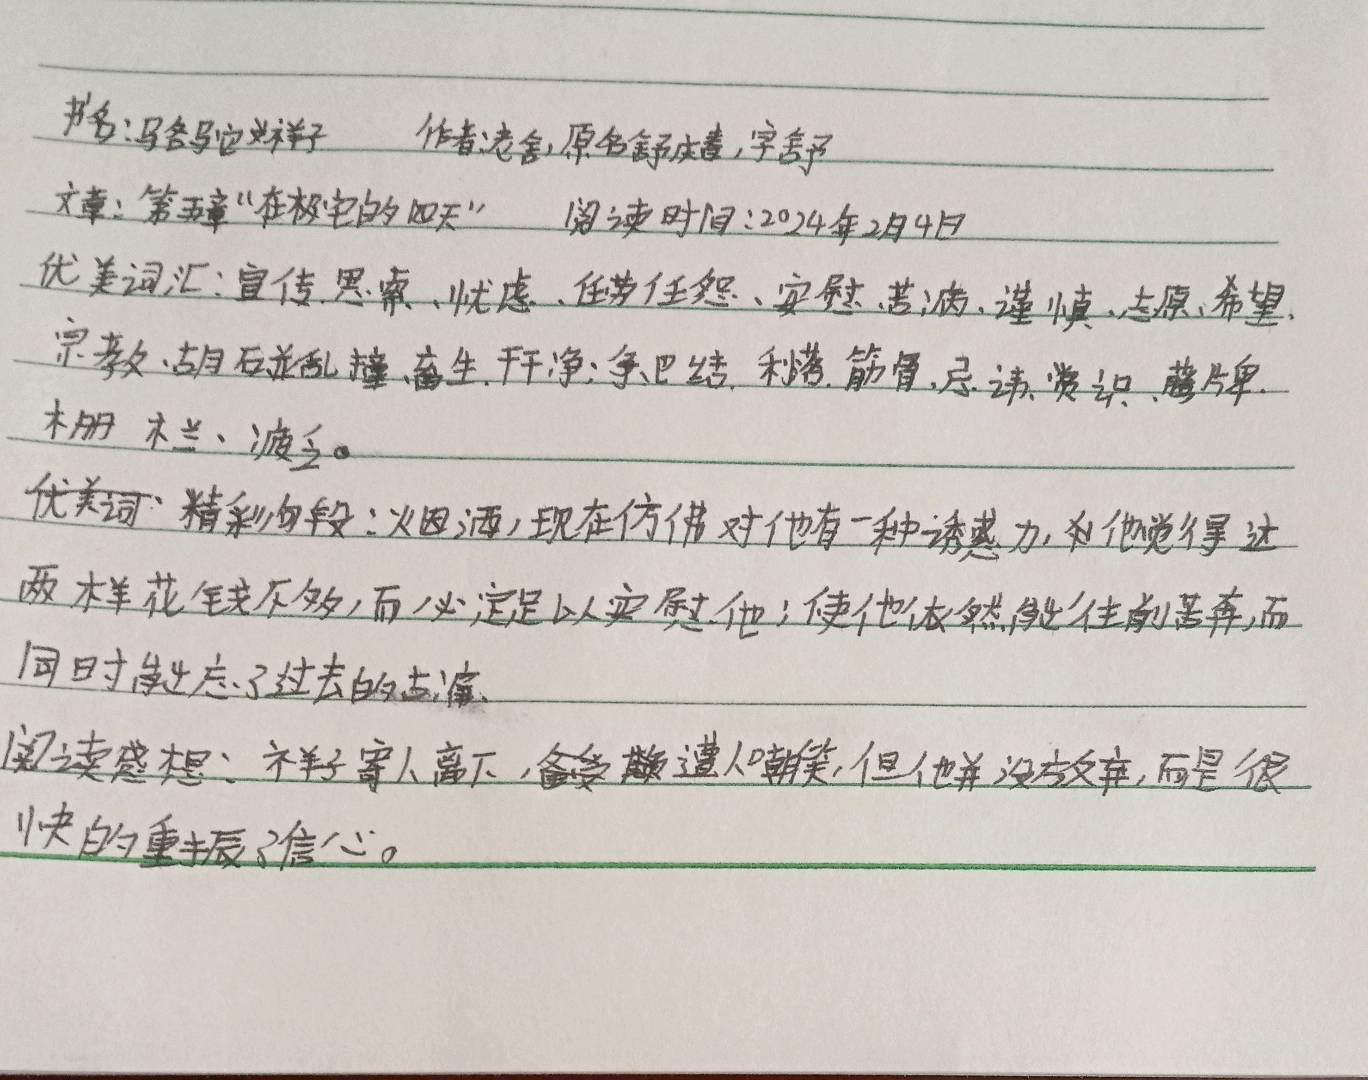 书名:骆驼祥子 作者:老舍,原名舒庆春,字舍予
文章:第五章“在杨宅的四天” 阅读时间:2024年2月4日
优美词汇:宣传、思索、忧虑、任劳任怨、安慰、苦痛、谨慎、志愿、希望、
宗教、胡碰乱撞、畜生、干净、争巴结、利落、筋骨、忌讳、赏识、藤牌、
栅栏、疲乏。
优美词 精彩句段:烟酒,现在仿佛对他有一种诱惑力,他觉得这
两样花钱不多,而必定足以安慰他;使他依然能往前苦奔,而
同时能忘了过去的苦痛、
阅读感想:祥子寄人篱下,备受 遭人嘲笑,但他并没放弃,而是很
快的重振了信心。